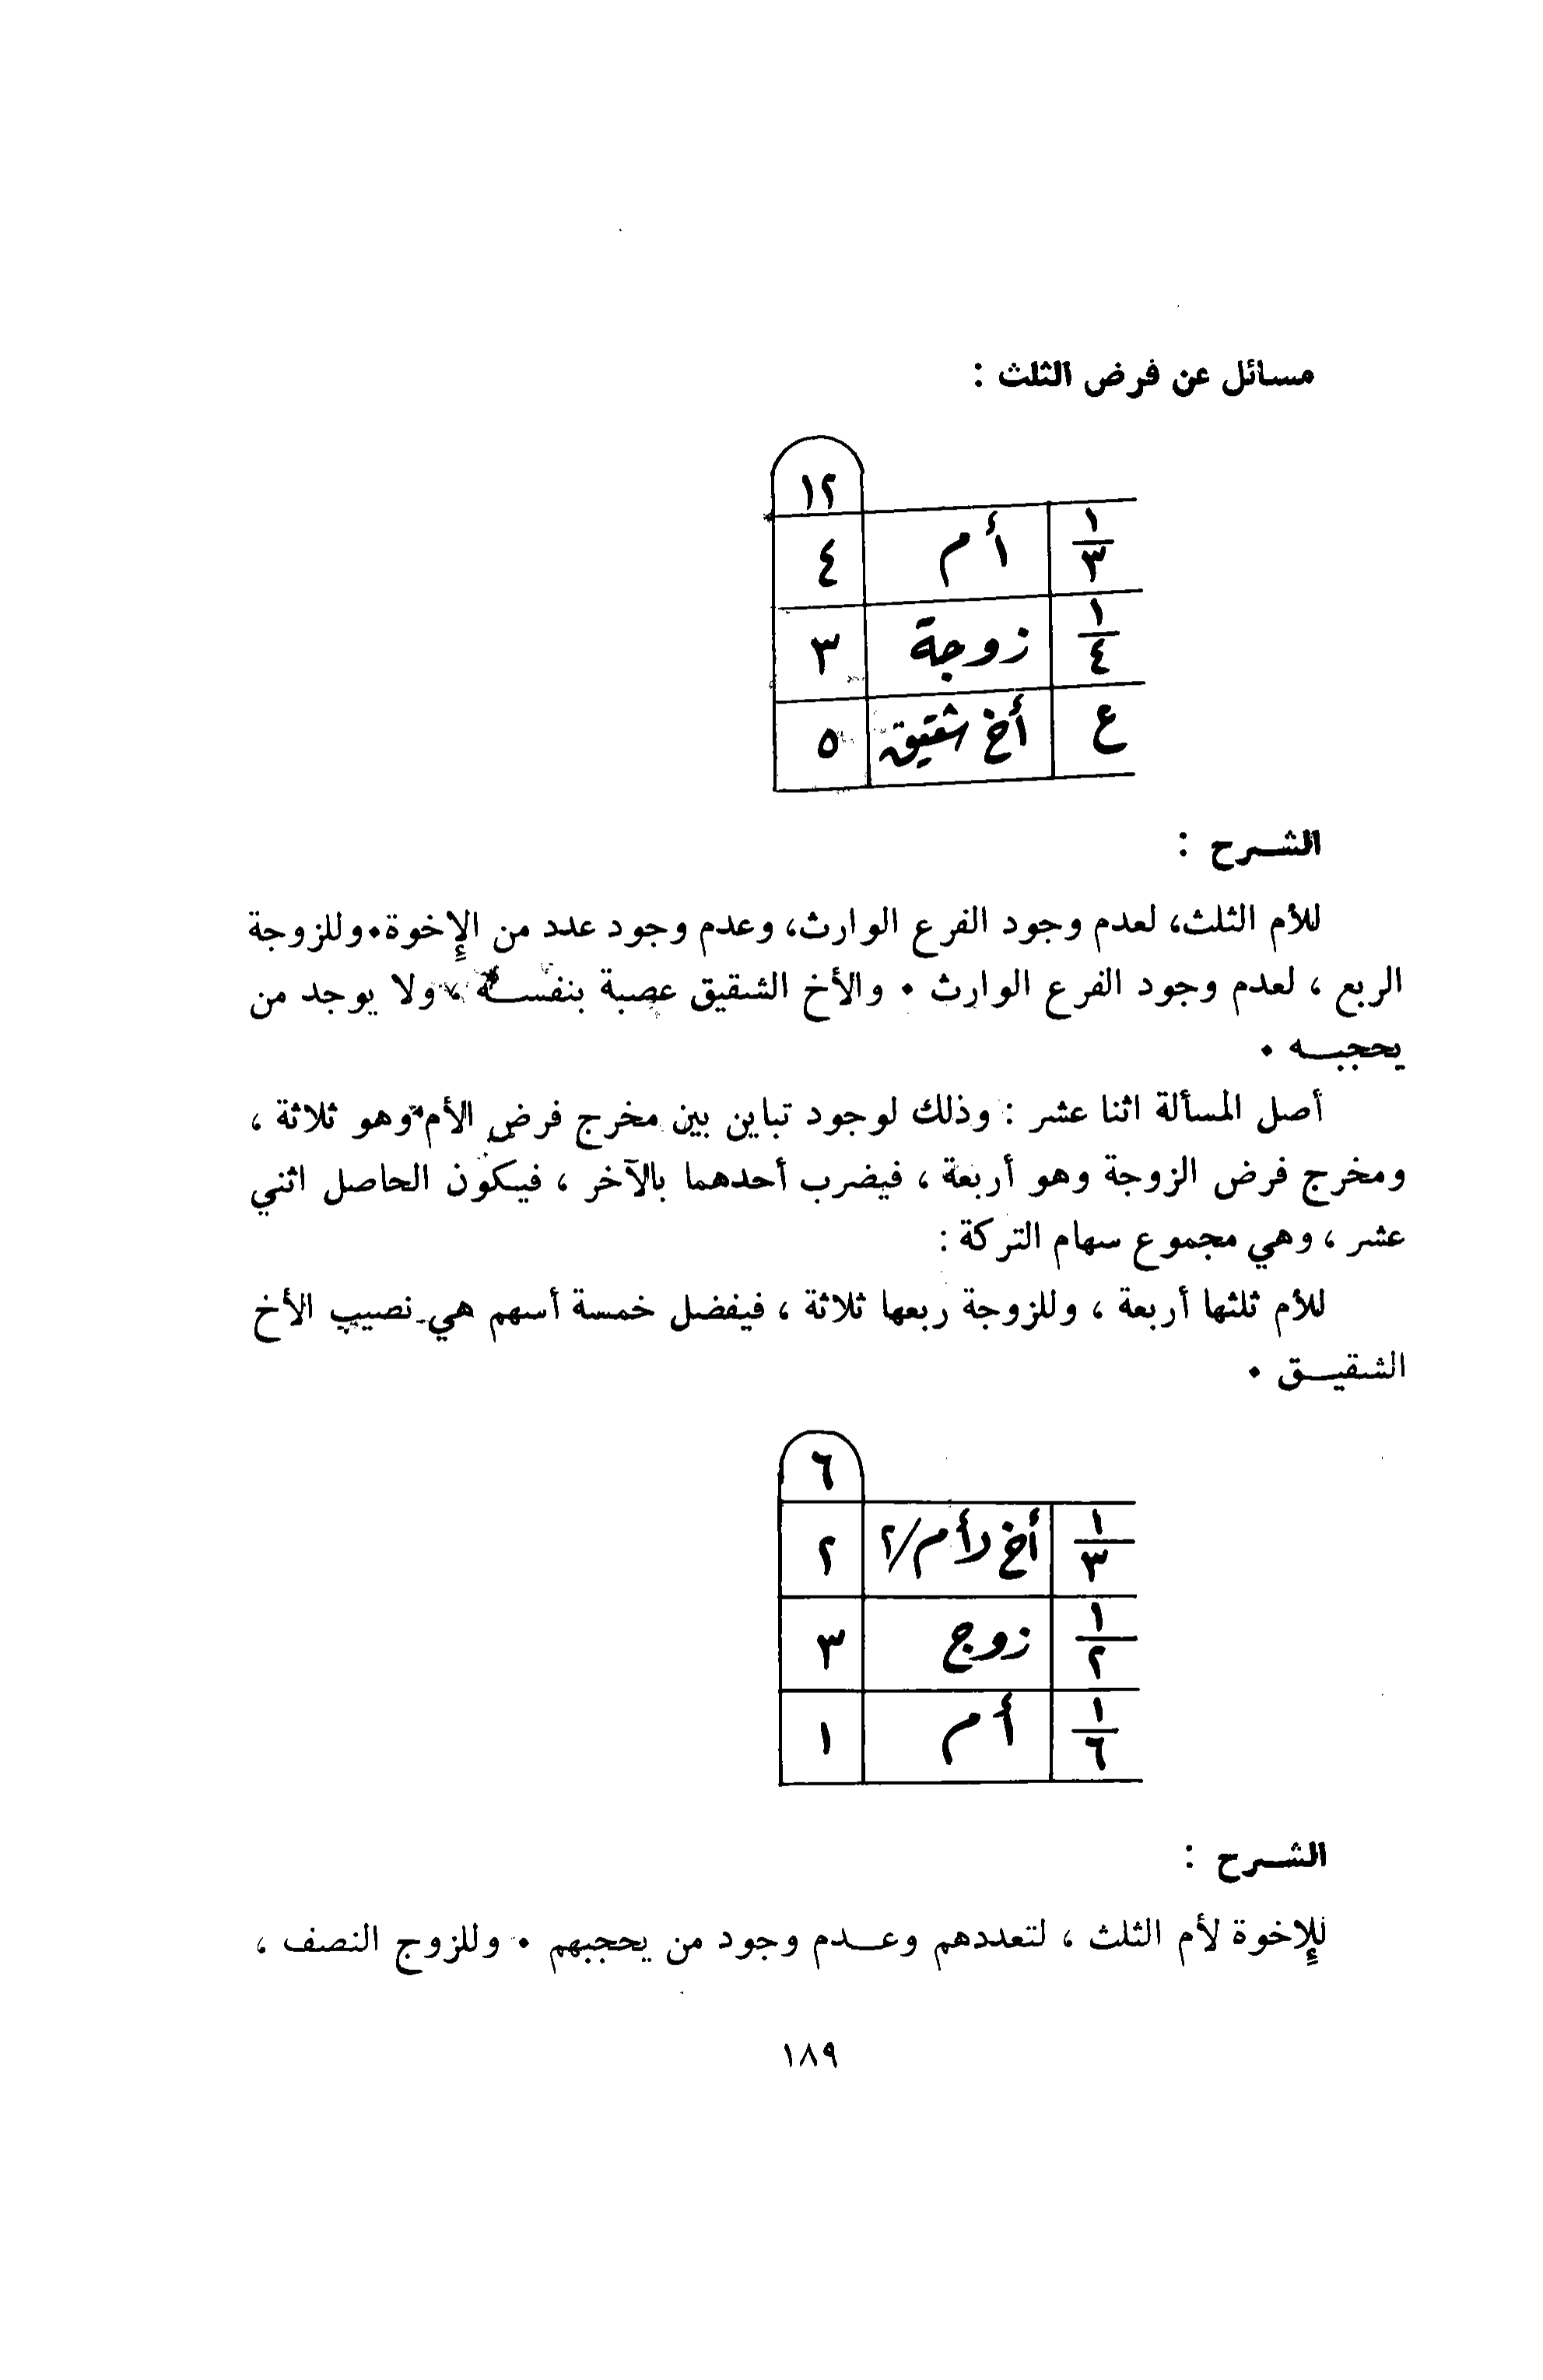 مسائل عن فرض الثلث :
١٢
١/٣ أم ٤
١/٤ زوجة ٣
ع أخ شقيق ٥
الشرح :
للأم الثلث، لعدم وجود الفرع الوارث، وعدم وجود عدد من الإخوة٠وللزوجة
الربع ، لعدم وجود الفرع الوارث ٠ والأخ الشقيق عصبة بنفسه ، ولا يوجد من
يحجبه ٠
أصل المسألة اثنا عشر : وذلك لوجود تباين بين مخرج فرض الأم وهو ثلاثة ،
ومخرج فرض الزوجة وهو أربعة ، فيضرب أحدهما بالآخر ، فيكون الحاصل اثني
عشر ، وهي مجموع سهام التركة :
للأم ثلثها أربعة ، وللزوجة ربعها ثلاثة ، فيفضل خمسة أسهم هي نصيب الأخ
الشقيق ٠
٦
١/٣ أخ لأم/٢ ٢
١/٢ زوج ٣
١/٦ أم ١
الشرح :
للإخوة لأم الثلث ، لتعددهم وعدم وجود من يحجبهم ٠ وللزوج النصف ،
١٨٩